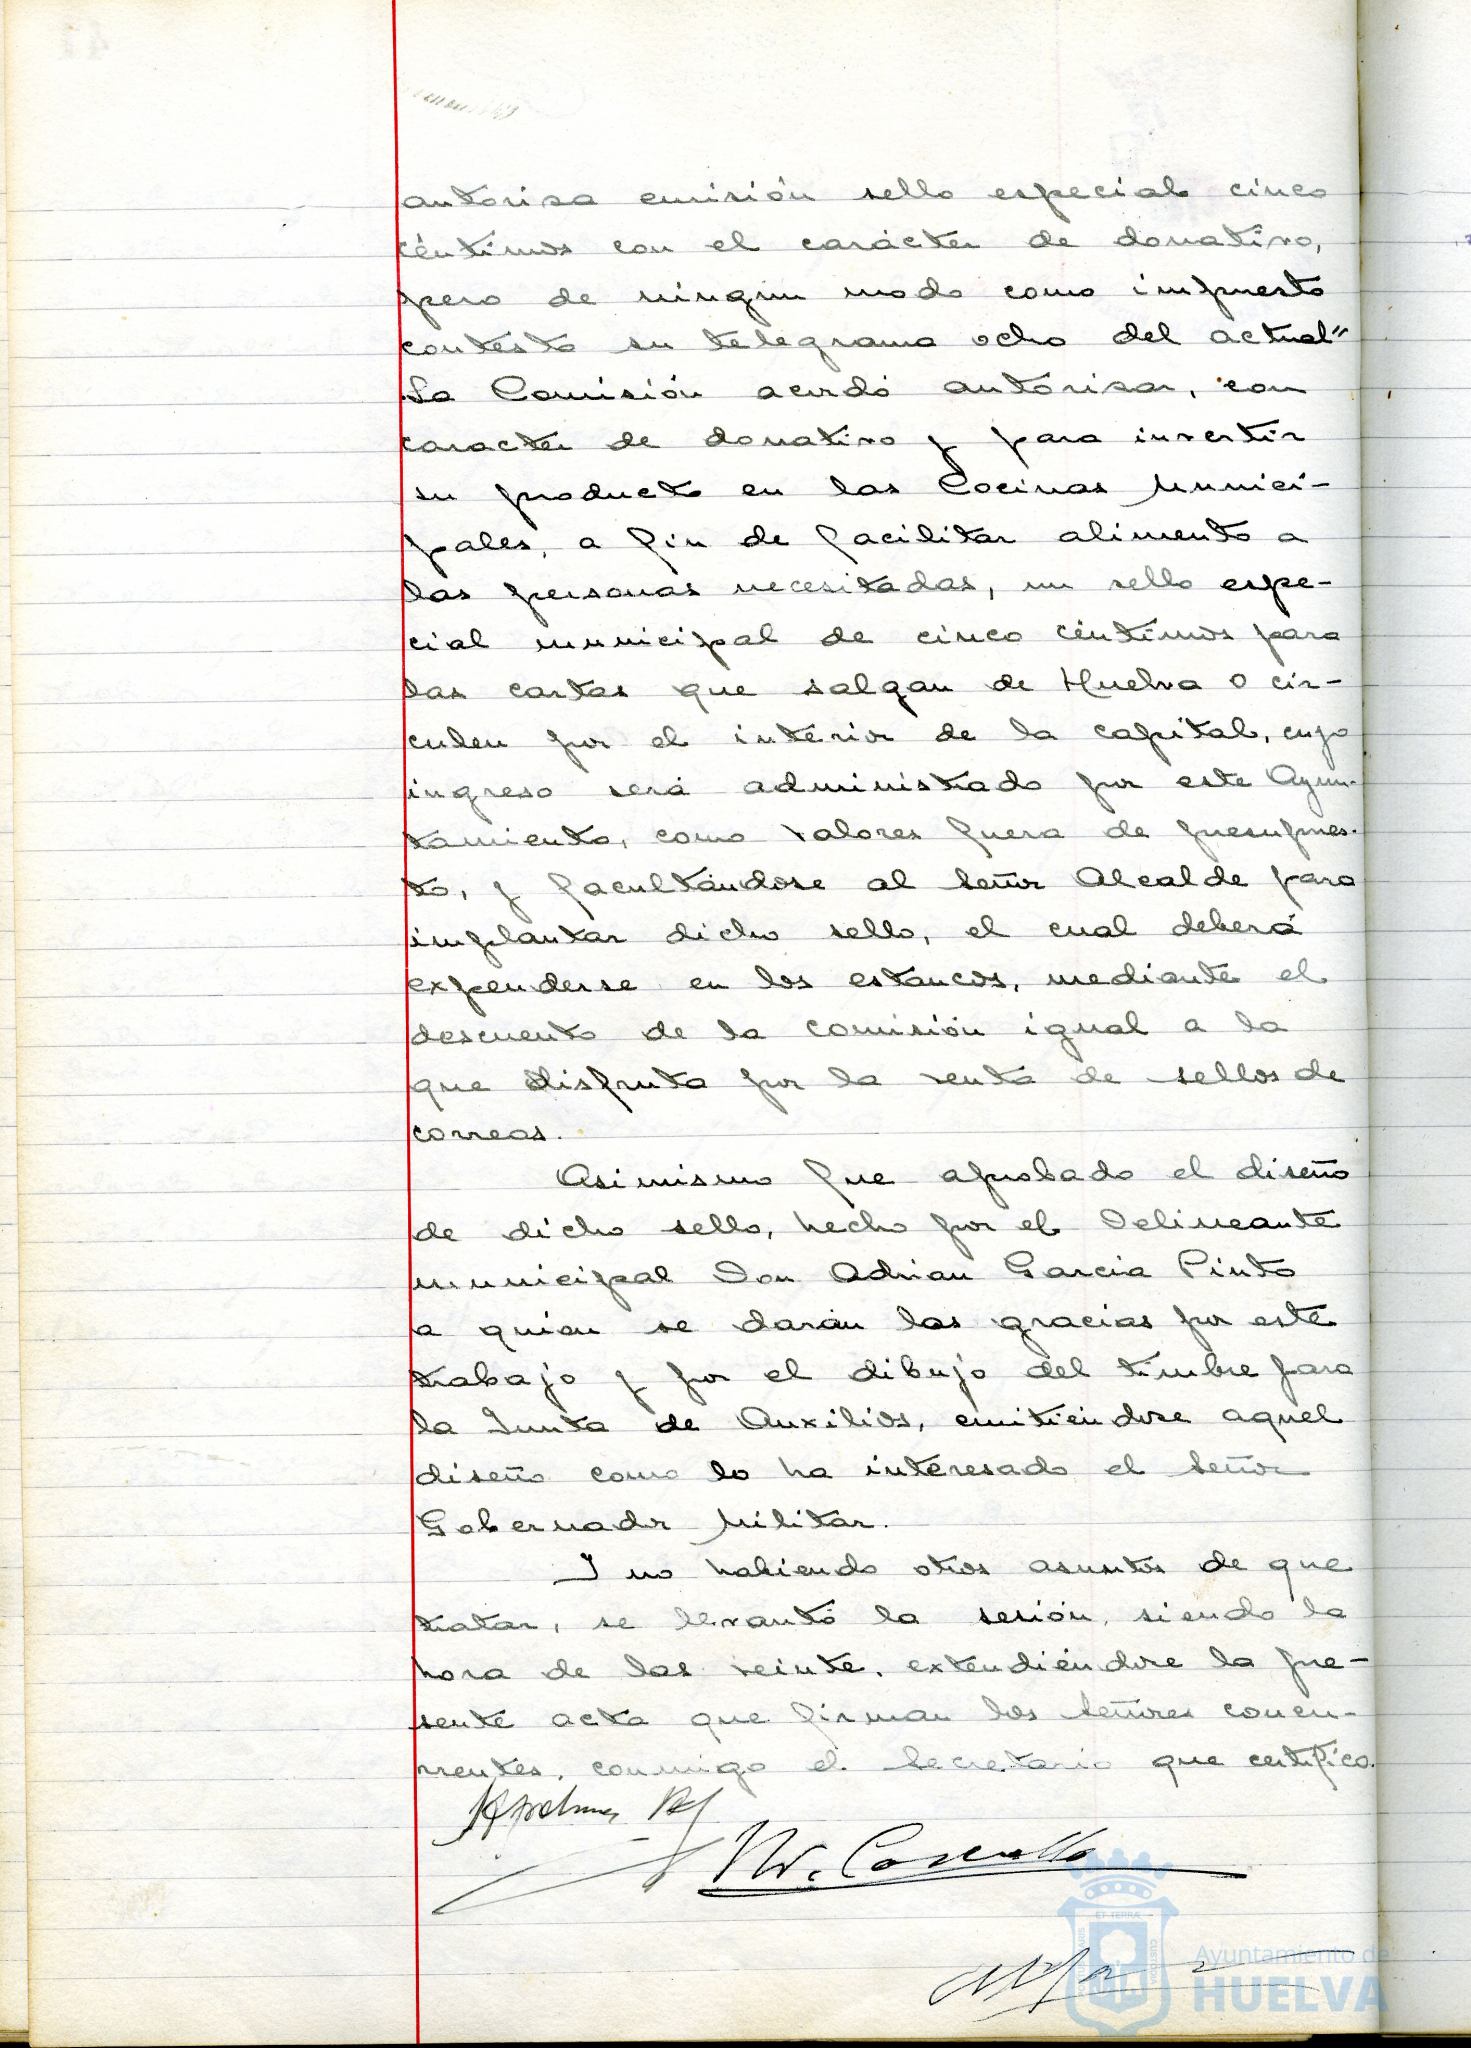 autorisa emisión sello especial cinco
céntimos con el carácter de donativo,
pero de ningun modo como impuesto
contesto su telegrama ocho del actual"
La Comisión acordó autorisar, con
caracter de donativo y para invertir
su producto en las Cocinas Munici-
pales, a fin de facilitar alimento a
las personas necesitadas, un sello espe-
cial municipal de cinco céntimos para
las cartas que salgan de Huelva o cir-
culen por el interior de la capital, cuyo
ingreso será administrado por este Ayun-
tamiento, como valores fuera de presupues-
to, y facultándose al Señor Alcalde para
implantar dicho sello, el cual deberá
expenderse en los estancos, mediante el
descuento de la comisión igual a la
que disfruta por la venta de sellos de
correos.
Asimismo fue aprobado el diseño
de dicho sello, hecho por el Delineante
municipal Don Adrian Garcia Pinto
a quien se darán las gracias por este
trabajo y por el dibujo del timbre para
la Junta de Auxilios, emitiéndose aquel
diseño como lo ha interesado el Señor
Gobernador Militar.
Y no habiendo otros asuntos de que
tratar, se levantó la sesión, siendo la
hora de las veinte, extendiéndose la pre-
sente acta que firman los Señores concu-
rrentes, conmigo el Secretario que certifico.
ET TERRÆ
CUSTODIA
Ayuntamiento de
HUELVA